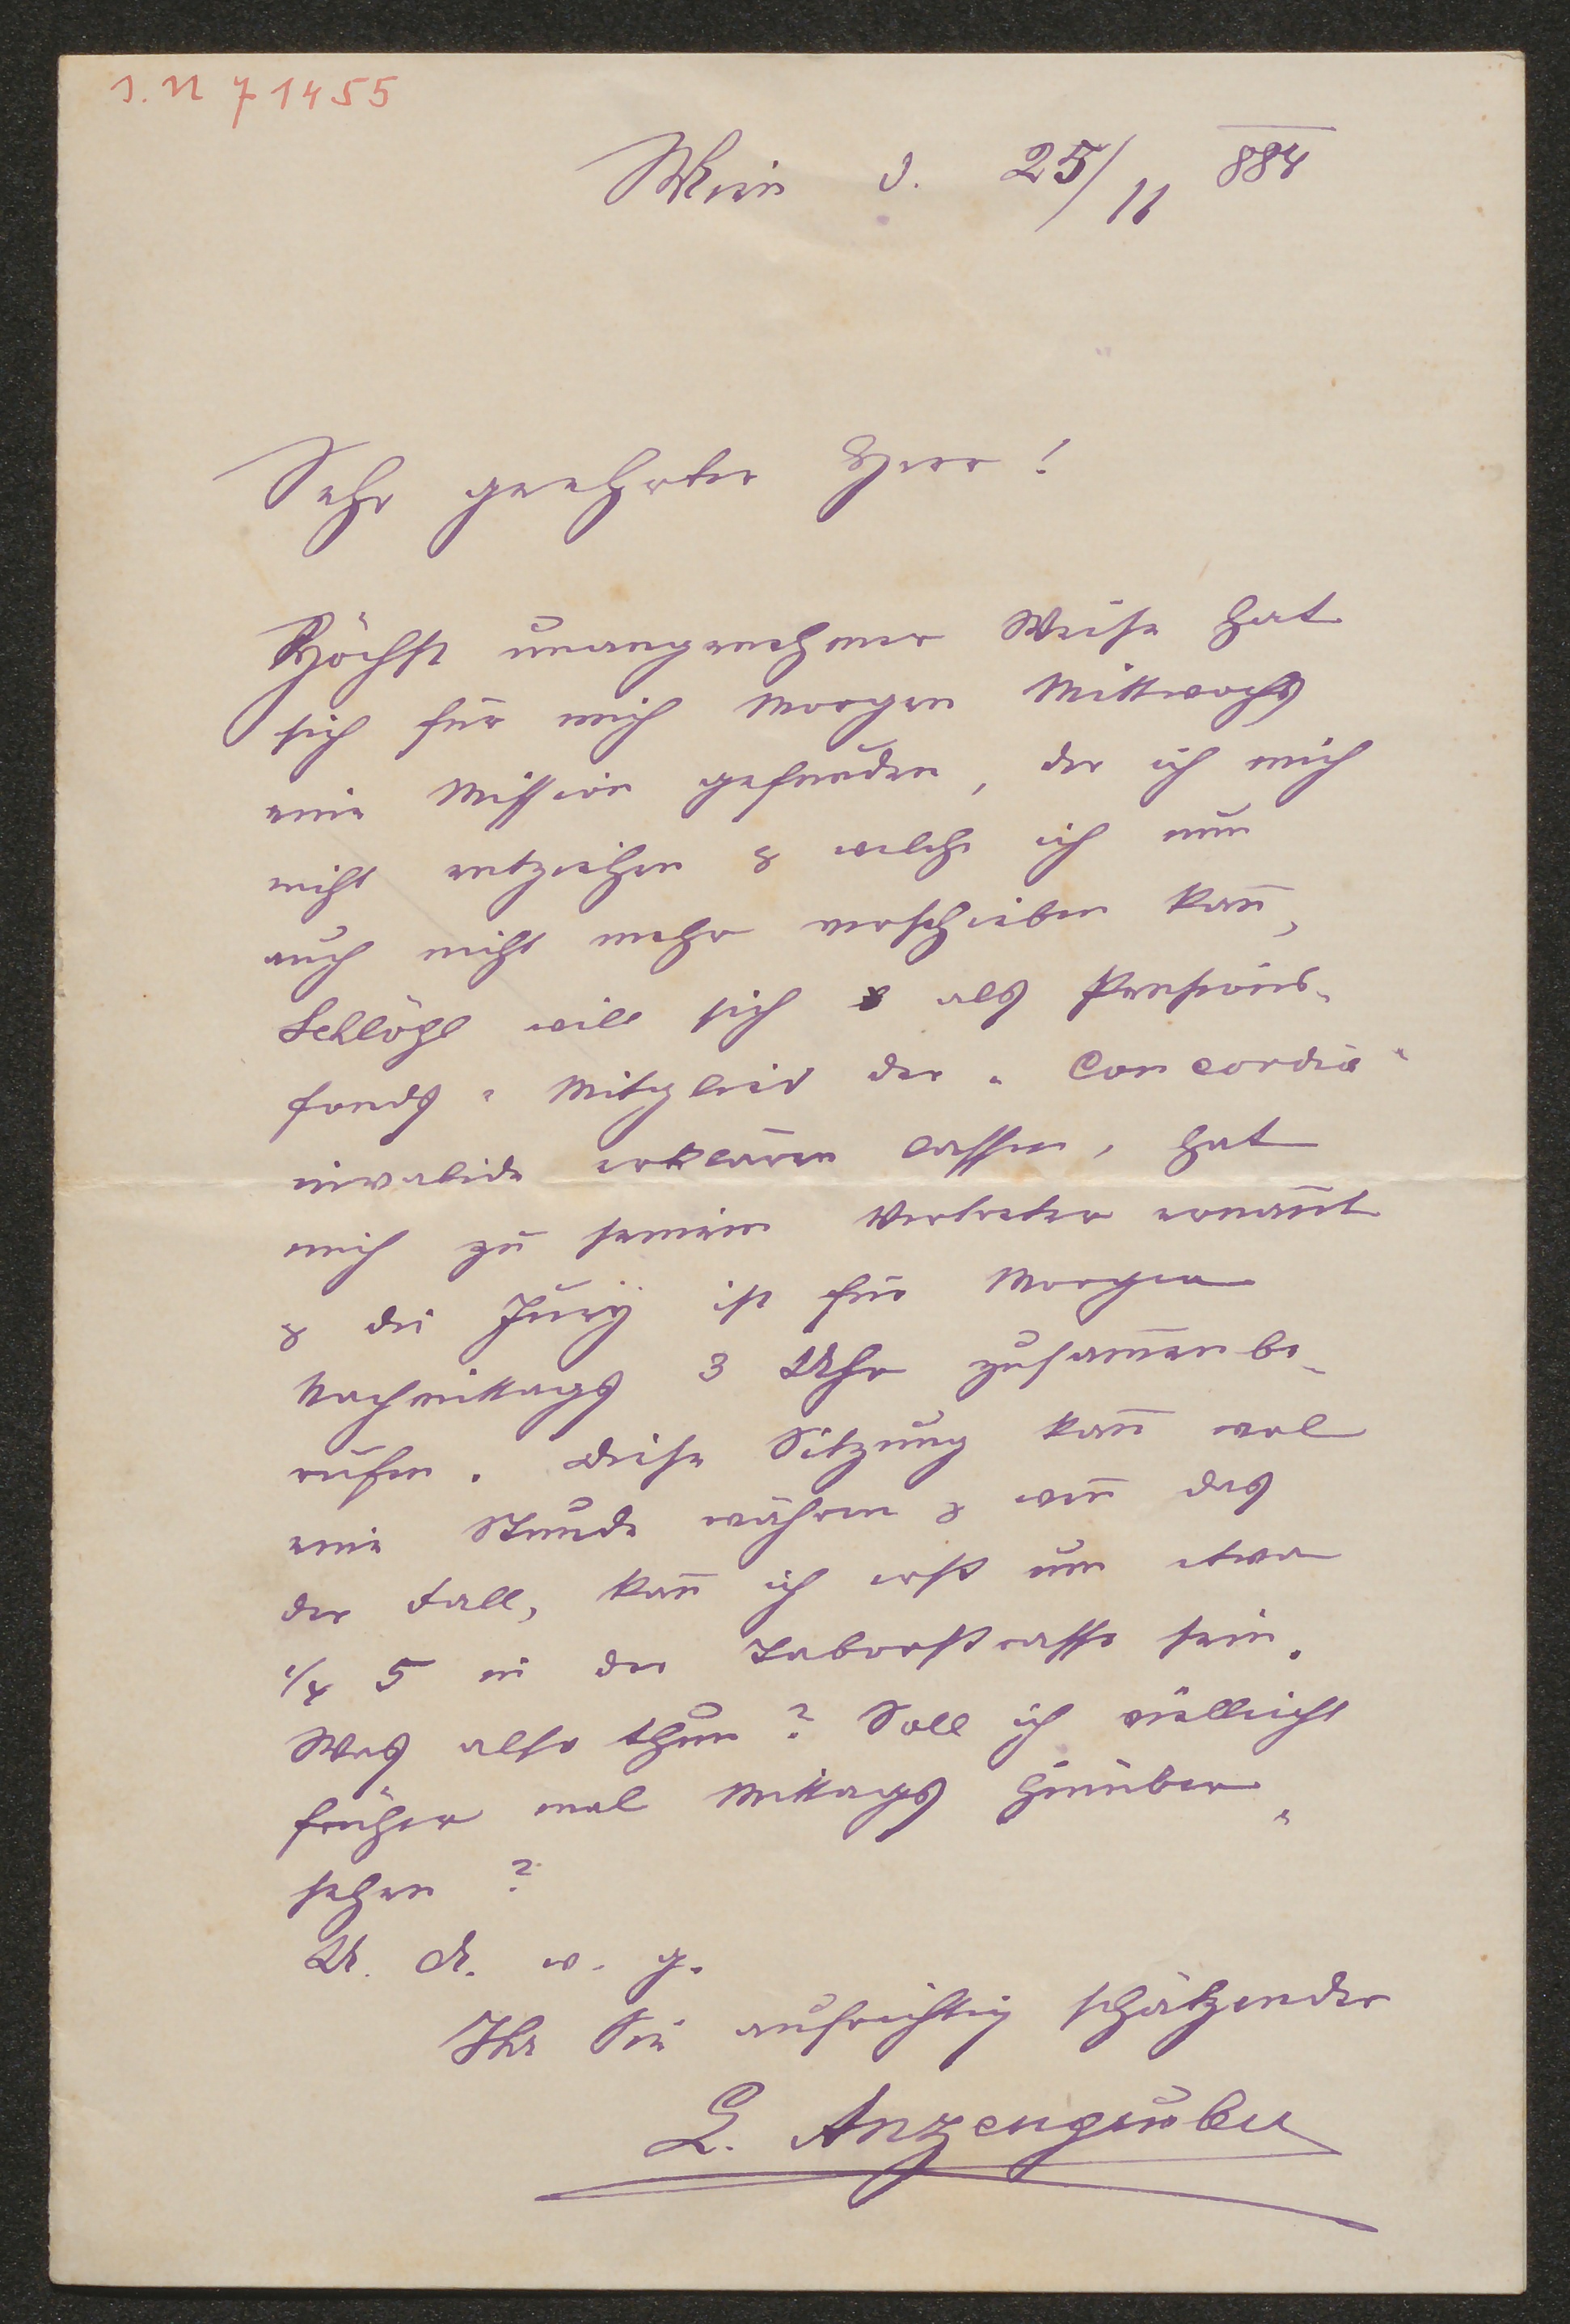 I. N 71455
Wien d. 25/11 884
Sehr geehrter Herr!
Höchst unangenehmer Weise hat
sich für mich Morgen Mittwochs
eine Mission gefunden, der ich mich
nicht entziehen & welche ich nun
auch nicht mehr verschieben kan̄,
Schlögl will sich als Pensions-
fonds-Mitglied der "Concordia"
invalide erklären lassen, hat
mich zu seinem Vertreter ernan̄t
& die Jury ist für Morgen
Nachmittags 3 Uhr zusam̄enbe-
rufen. Diese Sitzung kan̄ wol
eine Stunde währen & wen̄ das
der Fall, kan̄ ich erst um etwa
1/4 5 in der Taborstrasse sein.
Was also thun? Soll ich vielleicht
früher mal Mittags hinüber-
sehen?
U. A. w. g.
Ihr Sie aufrichtig schätzender
L. Anzengruber